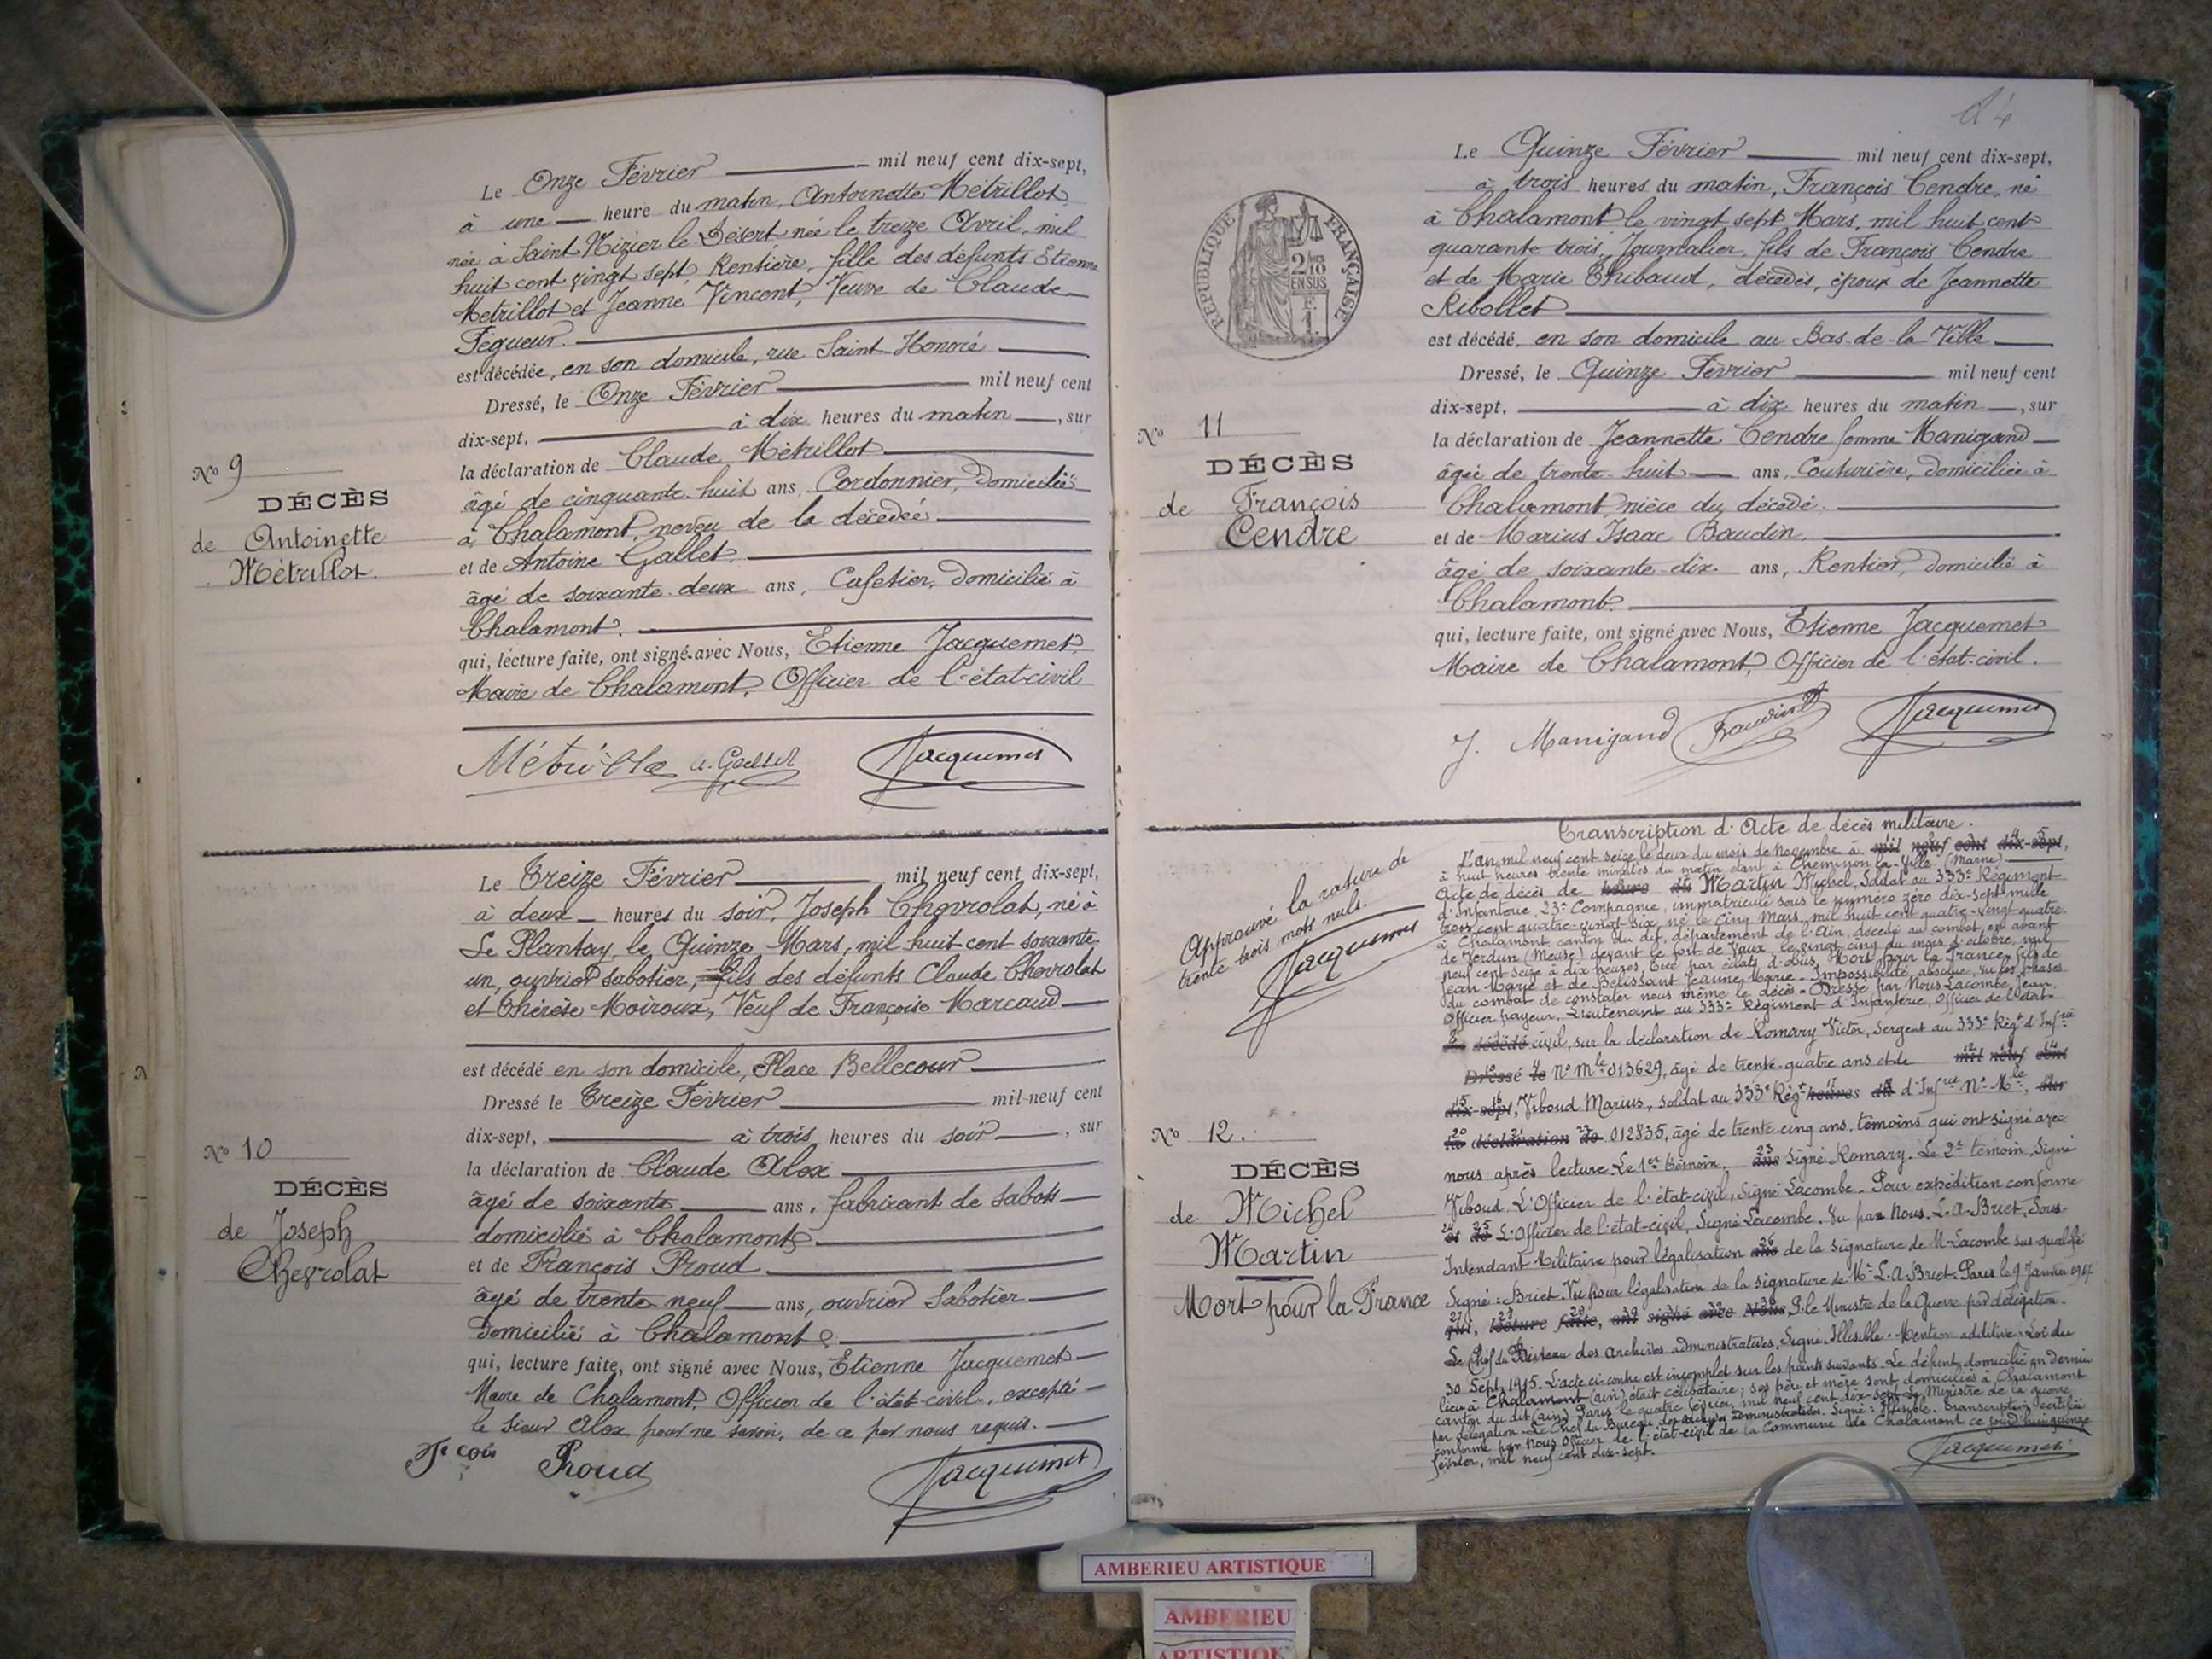 Le Onze Février mil neuf cent dix-sept,
à une heure du matin, Antoinette Métrillot
née à Saint Nizier le Désert née le treize Avril, mil
huit cent vingt sept, Rentière, fille des défunts Etienne
Metrillot et Jeanne Vincent, Veuve de Claude
Fégueur.
est décédée, en son domicile, rue Saint Honoré
Dressé, le Onze Février mil neuf cent
dix-sept, à dix heures du matin, sur
la déclaration de Claude Métrillot
âgé de cinquante-huit ans, Cordonnier, domicilié
à Chalamont, neveu de la décédée
et de Antoine Gallet
âgé de soixante-deux ans, Cafetier, domicilié à
Chalamont.
qui, lecture faite, ont signé avec Nous, Etienne Jacquemet,
Maire de Chalamont, Officier de l'état-civil
Jacquemet
No 9
DÉCÈS
de Antoinette
Métrillot
Le Treize Février mil neuf cent dix-sept,
à deux heures du soir, Joseph Chevrolat, né à
Le Plantay, le Quinze Mars, mil huit cent soixante
un, ouvrier sabotier, fils des défunts Claude Chevrolat
et Thérèse Moiroux, Veuf de Françoise Marcaud
est décédé en son domicile, Place Bellecour
Dressé le Treize Février mil neuf cent
dix-sept, à trois heures du soir, sur
la déclaration de Claude Alex
âgé de soixante ans, fabricant de sabots
domicilié à Chalamont
et de François Proud
âgé de trente-neuf ans, ouvrier Sabotier
domicilié à Chalamont
qui, lecture faite, ont signé avec Nous, Etienne Jacquemet
Maire de Chalamont, Officier de l'état-civil, excepté
le sieur Alex pour ne savoir, de ce par nous requis.
Proud
Jacquemet
No 10
DÉCÈS
de Joseph
Chevrolat
RÉPUBLIQUE FRANÇAISE
2/10
EN SUS
Le Quinze Février mil neuf cent dix-sept,
à trois heures du matin, François Cendre, né
à Chalamont le vingt sept Mars, mil huit cent
quarante-trois, Journalier, fils de François Cendre
et de Marie Thibaud, décédés, époux de Jeannette
Ribollet
est décédé, en son domicile au Bas-de-la-Ville
Dressé, le Quinze Février mil neuf cent
dix-sept, à dix heures du matin, sur
la déclaration de Jeannette Cendre femme Manigand
âgée de trente-huit ans, Couturière, domiciliée à
Chalamont nièce du décédé
et de Marius Isaac Baudin.
âgé de soixante-dix ans, Rentier, domicilié à
Chalamont
qui, lecture faite, ont signé avec Nous, Etienne Jacquemet
Maire de Chalamont, Officier de l'état-civil.
J. Manigand Baudin Jacquemet
No 11
DÉCÈS
de François
Cendre
Transcription d'Acte de décès militaire.
L'an mil neuf cent seize, le deux du mois de Novembre à mil neuf cent dix-sept,
à huit heures trente minutes du matin étant à Cheminon la-Ville (Marne)
Acte de décès de heure du Martin Michel, Soldat au 333e Régiment
d'Infanterie, 23e Compagnie, immatriculé sous le numéro zéro dix-sept mille
trois cent quatre-vingt-six, né le Cinq Mars, mil huit cent quatre-vingt quatre
à Chalamont canton du dit, département de l'Ain, décédé au combat, en avant
de Verdun (Meuse) devant le fort de Vaux le vingt cinq du mois d'octobre, mil
neuf cent seize à dix heures, tué par éclats d'obus, Mort pour la France, fils de
Jean Marie et de Belissant Jeanne Marie. Impossibilité absolue, vu les phases
du combat de constater nous même le décès. Dressé par Nous Lacombe, Jean,
Officier payeur, Lieutenant au 333e Régiment d'Infanterie, Officier de l'état
est décédé civil, sur la déclaration de Romary Victor, Sergent au 333e Régt d'Infrie
Dressé le No Mle 013629, âgé de trente-quatre ans et de mil neuf cent
dix-sept, Viboud Marius, soldat au 333e Régt heures du d'Infrie No Mle, sur
la déclaration de 012835, âgé de trente cinq ans, témoins qui ont signé avec
nous après lecture. Le 1er témoin, ans Signé Romary. Le 2e témoin, Signé
Viboud. L'Officier de l'état-civil, Signé Lacombe. Pour expédition conforme
et de L'Officier de l'état-civil, Signé Lacombe. Vu par Nous. L.A. Briet, Sous-
Intendant Militaire pour légalisation ans de la signature de M. Lacombe sus-qualifié
Signé: Briet. Vu pour légalisation de la signature de Mr L.A. Briet. Paris le 9 Janvier 1917
qui, lecture faite, ont signé avec Nous, P. le Ministre de la Guerre par délégation.
Le Chef du Bureau des archives administratives, Signé, Illisible. Mention additive: Loi du
30 Sept. 1915. L'acte ci-contre est incomplet sur les points suivants. Le défunt domicilié en dernier
lieu à Chalamont (ain) était célibataire; ses père et mère sont domiciliés à Chalamont
canton du dit (ain). Paris le quatre février, mil neuf cent dix-sept. Le Ministre de la guerre
par délégation. Le Chef du Bureau des archives administratives. Signé: Illisible. Transcription certifiée
conforme par nous Officier de l'état-civil de la Commune de Chalamont ce jourd'hui quinze
février, mil neuf cent dix-sept.
Jacquemet
Approuvé la rature de
trente trois mots nuls.
Jacquemet
No 12.
DÉCÈS
de Michel
Martin
Mort pour la France
AMBERIEU ARTISTIQUE
AMBERIEU
ARTISTIQUE